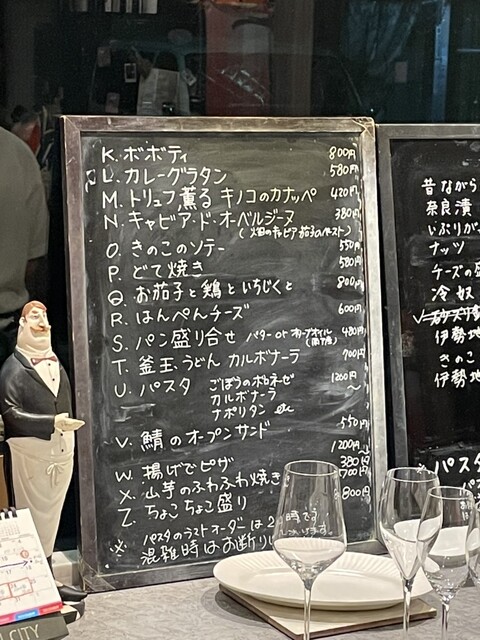 K. ボボティ 800円
L. カレーグラタン 580円
M. トリュフ薫る キノコのカナッペ 420円
N. キャビア・ド・オーベルジーヌ 380円
(畑のキャビア 茄子のペースト)
O. きのこのソテー 550円
P. どて焼き 580円
Q. お茄子と鶏といちじくと 800円
R. はんぺんチーズ 600円
S. パン盛り合せ バター or オリーブオイル 480円
T. 釜玉うどん カルボナーラ 700円
U. パスタ ごぼうのボロネーゼ 1200円〜
カルボナーラ
ナポリタン etc
V. 鯖のオープンサンド 550円
W. 揚げでピザ 380円
X. 山芋のふわふわ焼き 700円
Z. ちょこちょこ盛り 800円
※ パスタのラストオーダーは2 時です
混雑時はお断り
昔ながら
奈良漬
いぶりが
ナッツ
チーズの盛
冷奴
伊勢地
きのこ
伊勢地
パスタ
CITY